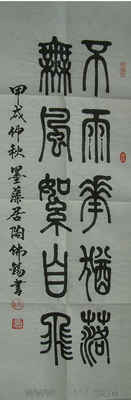 不雨華猶落
無風絮自飛
甲戌仲秋墨藤居陶佛錫書